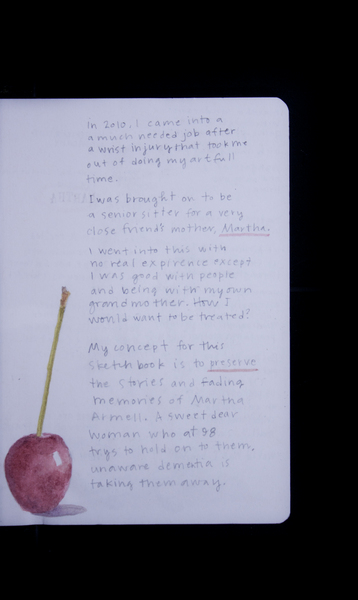 In 2010, I came into a
a much needed job after
a wrist injury that took me
out of doing my art full
time.
I was brought on to be
a senior sitter for a very
close friend's mother, Martha.
I went into this with
no real expirence except
I was good with people
and being with my own
grandmother. How I
would want to be treated?
My concept for this
sketchbook is to preserve
the stories and fading
memories of Martha
Armell. A sweet dear
woman who at 98
trys to hold on to them,
unaware dementia is
taking them away.